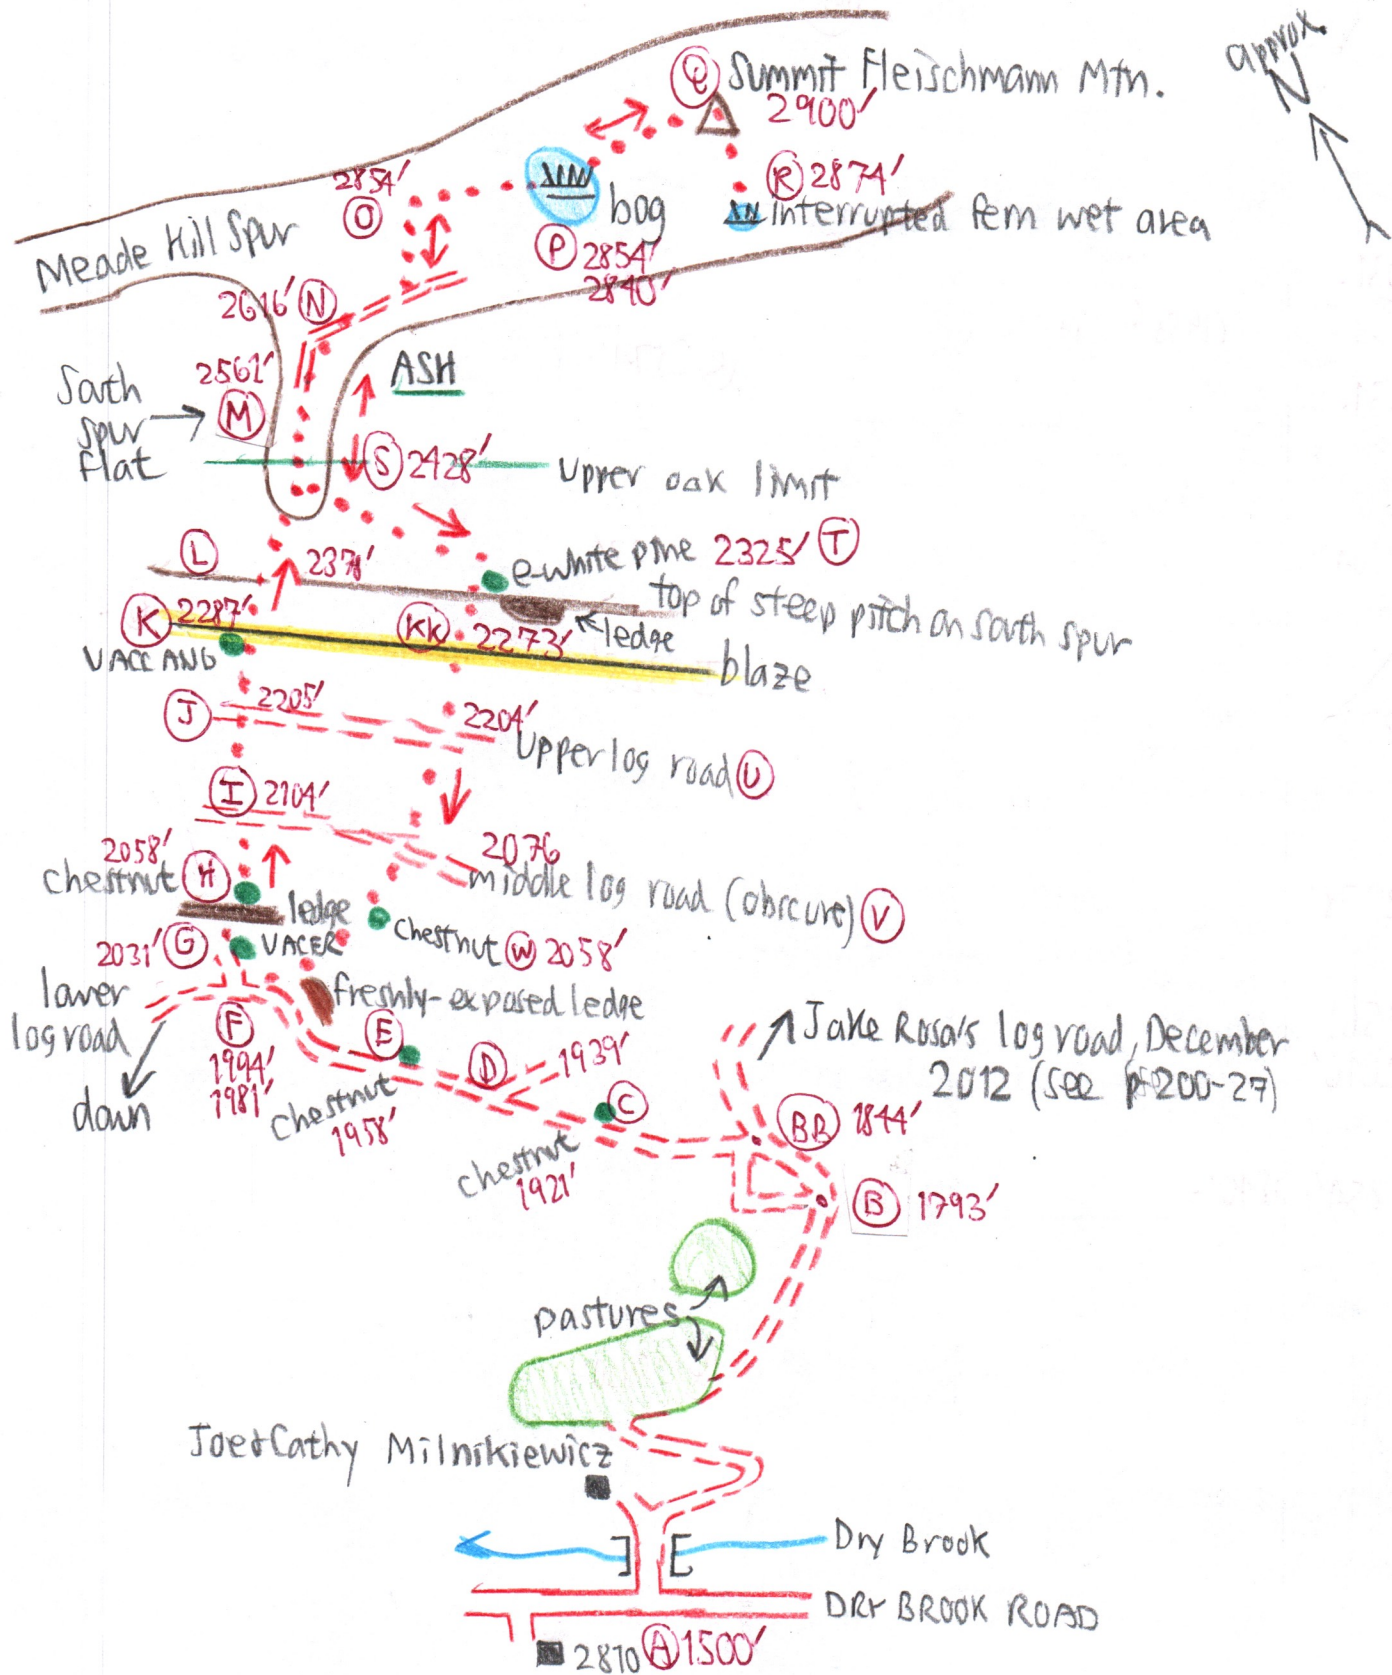 approx.
N
Q Summit Fleischmann Mtn.
2900'
2854'
O
R 2874'
interrupted fern wet area
bog
P 2854'
2840'
Meade Kill Spur
2616' N
ASH
2561'
M
South
spur
flat
S 2428'
upper oak limit
L
2371'
e-white pine 2325' T
top of steep pitch on south spur
K 2287'
KK 2273'
ledge
VACC ANG
blaze
J 2205'
2204'
Upper log road U
I 2104'
2058'
chestnut H
2076
middle log road (obscure) V
ledge
2031' G
VACER
chestnut W 2058'
lower
log road
down
freshly-exposed ledge
F
1994'
1981'
E
chestnut
1958'
D
1939'
C
chestnut
1921'
Jake Rosa's log road, December
2012 (see p 200-27)
BB 1844'
B 1793'
pastures
Joe & Cathy Milnikiewicz
Dry Brook
DRY BROOK ROAD
2870 A 1500'